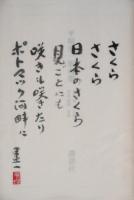 さくら
さくら
日本のさくら
見ごとにも
咲きも咲きたり
ポトマック河畔に